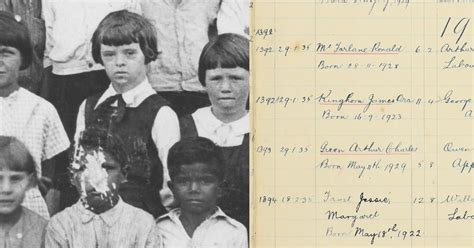 19
1391
1392 29·1·35 McFarlane Ronald 6·2 Arthur
Born 28·11·1928 Labou
1392 29·1·35 Kinghorn James Ora 11 4 Georg
Born 16·9·1923
1393 29·1·35 Green Arthur Charles Owen
Born May 11th, 1929 5·8 App
1394 18·2·35 Jessie, 12·8 Will
Margaret Labo
Born May 18th, 1922